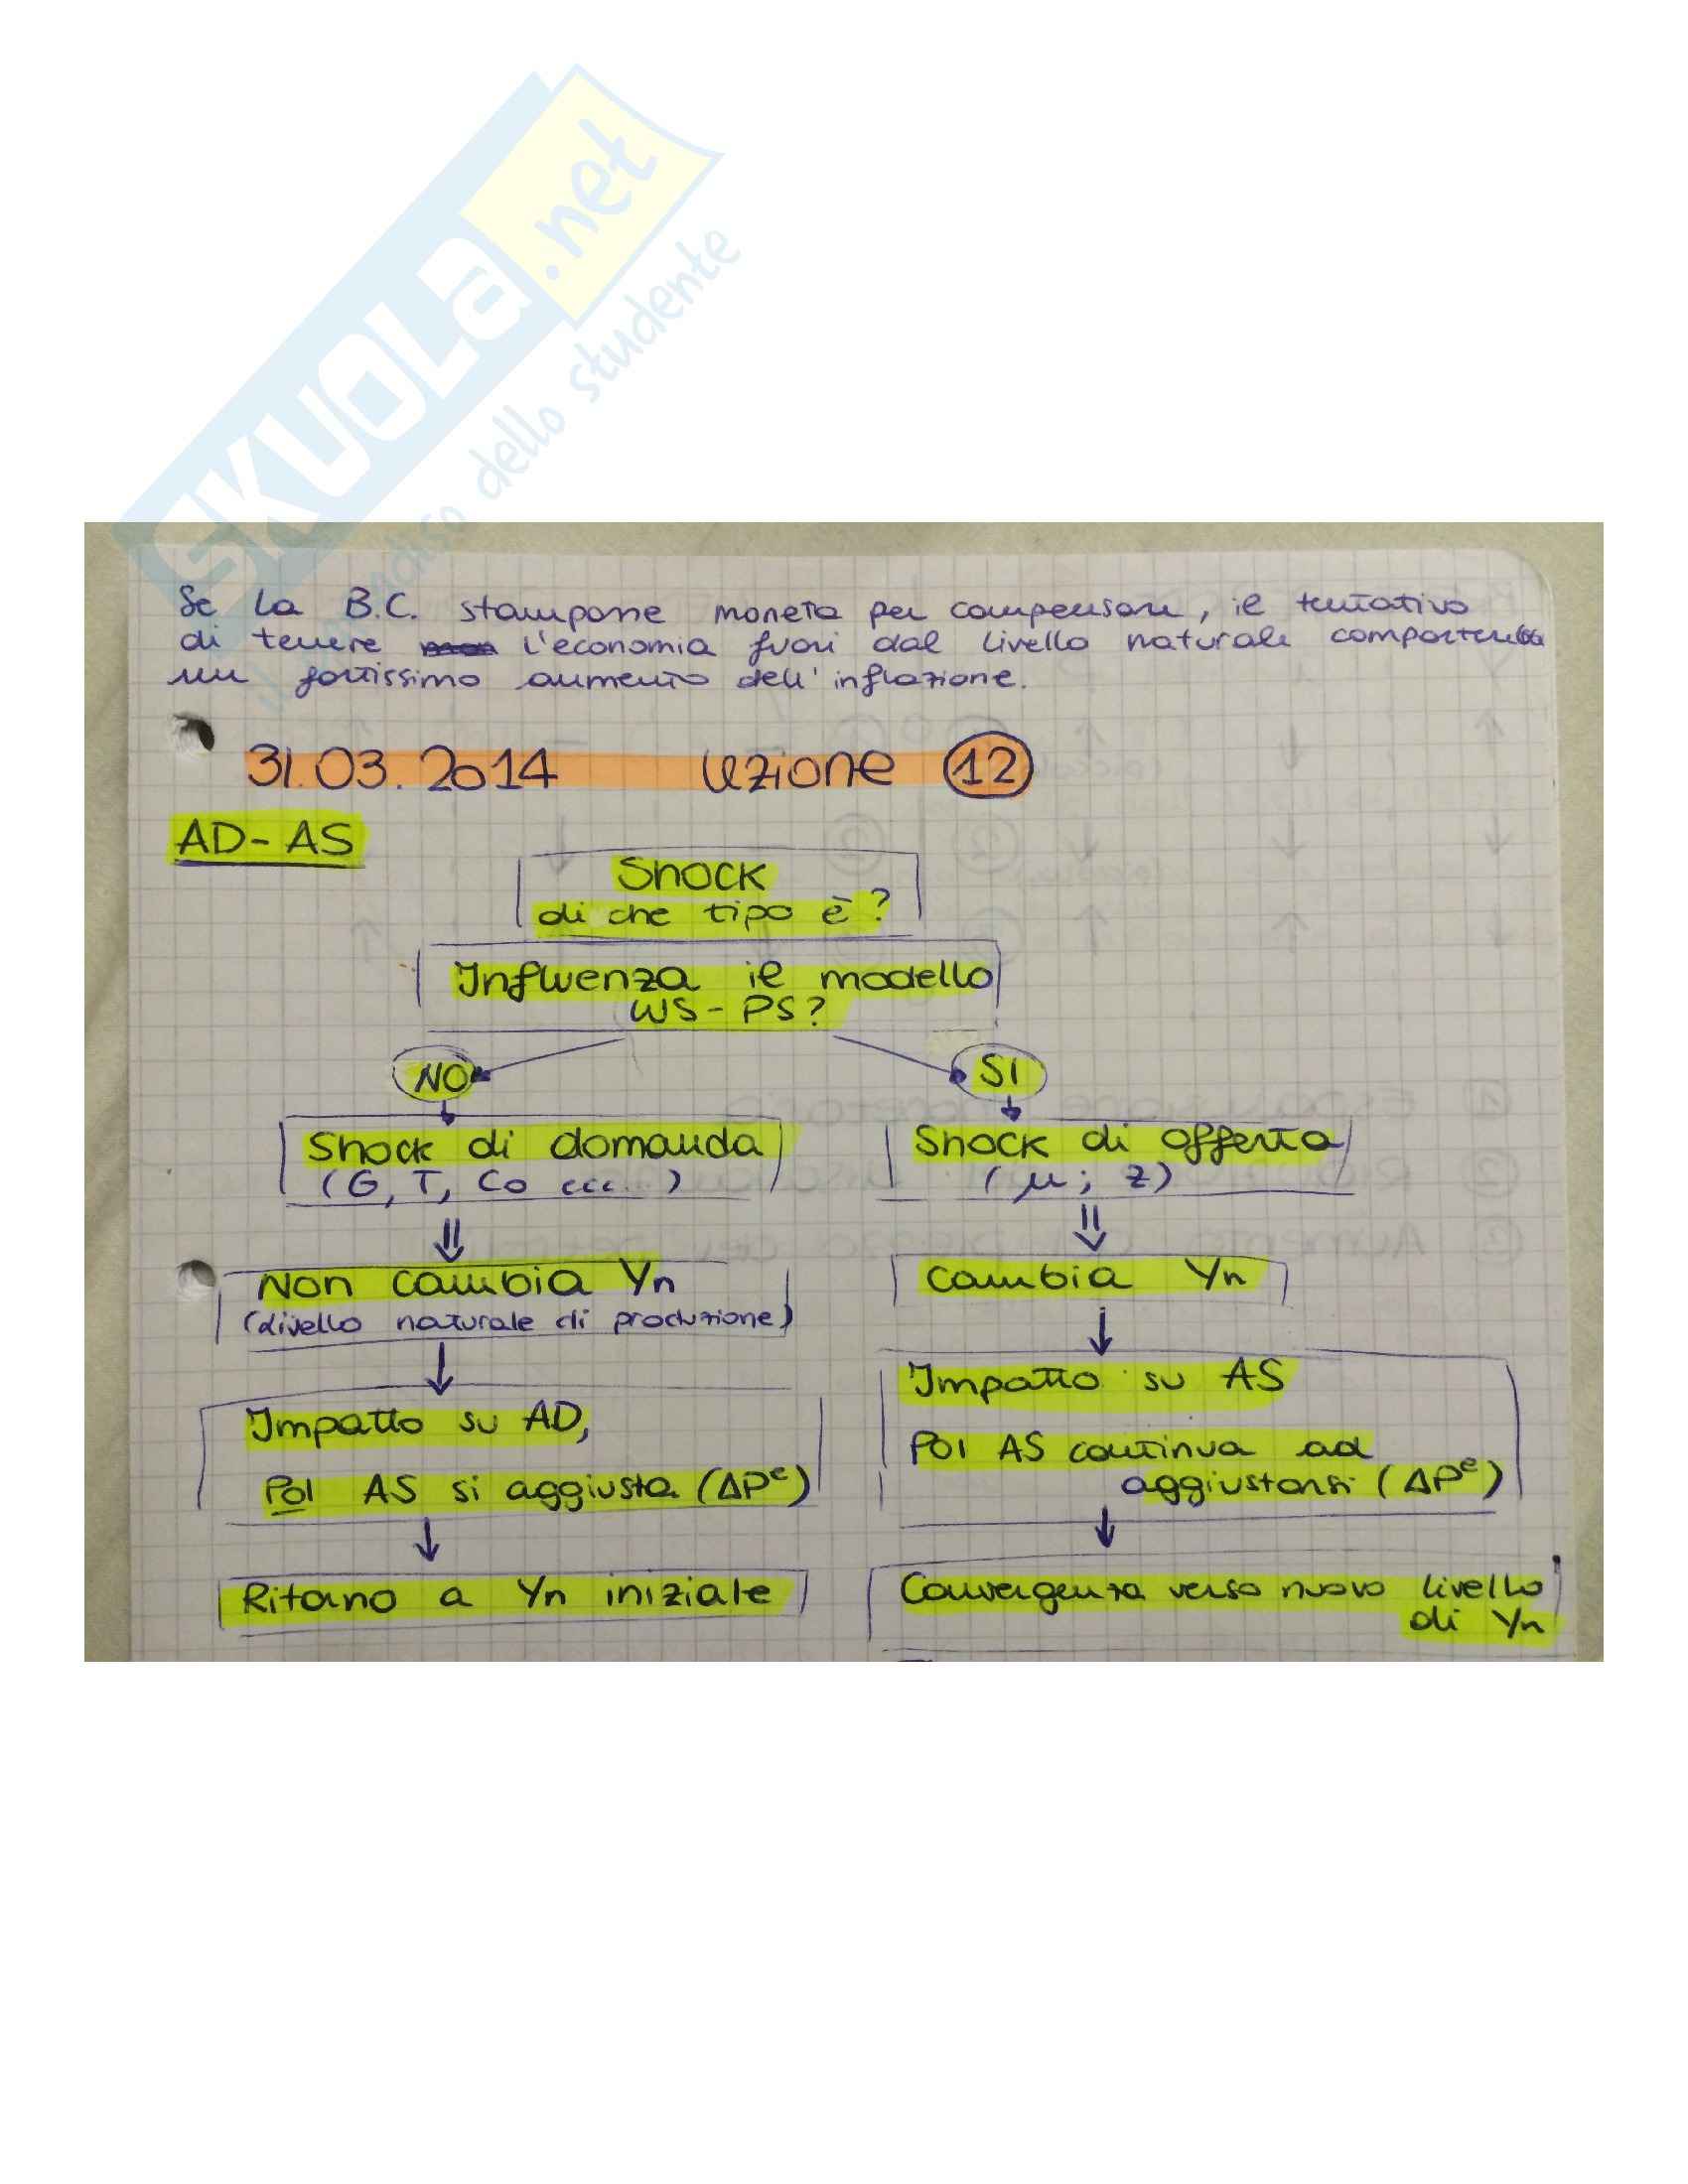 SKUOLa.net
il paradiso dello studente
Se la B.C. stampasse moneta per compensare, il tentativo
di tenere l'economia fuori dal livello naturale comporterebbe
un fortissimo aumento dell'inflazione.
31.03.2014 Lezione 12
AD-AS
Shock
di che tipo è?
Influenza il modello
WS-PS?
NO
SI
Shock di domanda
(G, T, Co ecc...)
Shock di offerta
(μ; z)
Non cambia Yn
(livello naturale di produzione)
Cambia Yn
Impatto su AD,
Poi AS si aggiusta (ΔPᵉ)
Impatto su AS
Poi AS continua ad
aggiustarsi (ΔPᵉ)
Ritorno a Yn iniziale
Convergenza verso nuovo livello
di Yn